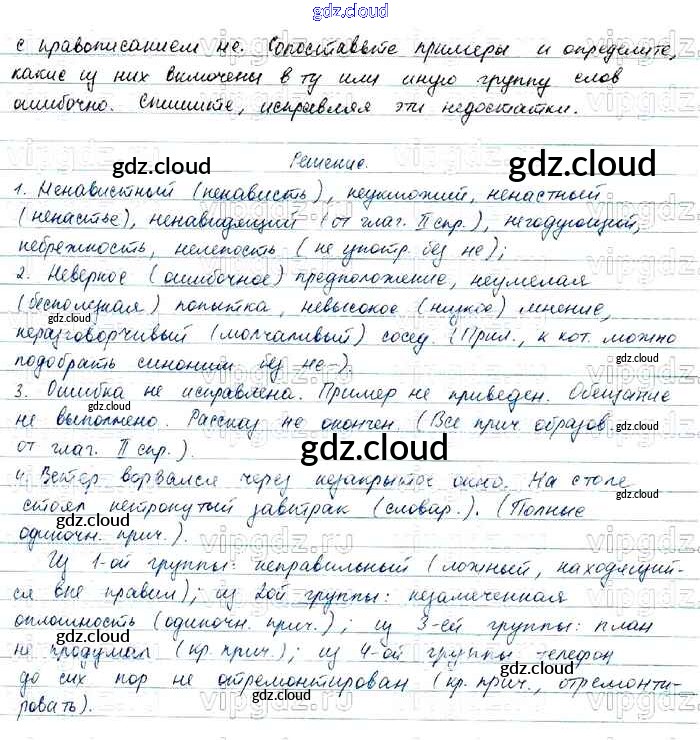 gdz.cloud
с правописанием не. Сопоставьте примеры и определите,
какие из них включены в ту или иную группу слов
ошибочно. Спишите, исправляя эти недостатки.
Решение.
gdz.cloud
gdz.cloud
1. Ненавистный (ненависть), неумолимый, ненастный
(ненастье), ненавидящий (от глаг. II спр.), негодующий,
небрежность, нелепость (не употр. без не);
2. Неверное (ошибочное) предположение, неумелая
(бесполезная) попытка, невысокое (низкое) мнение,
неразговорчивый (молчаливый) сосед. (Прил., к кот. можно
подобрать синоним без не-).
3. Ошибка не исправлена. Пример не приведен. Обещание
не выполнено. Рассказ не окончен. (Все прич. образов.
от глаг. II спр.).
4. Ветер ворвался через незакрытое окно. На столе
стоял нетронутый завтрак (словар.). (Полные
одиночн. прич.).
Из 1-ой группы: неправильный (ложный, находящий-
ся вне правил); из 2ой группы: незамеченная
оплошность (одиночн. прич.); из 3-ей группы: план
не продуман (кр. прич.); из 4-ой группы телефон
до сих пор не отремонтирован (кр. прич., отремонти-
ровать).
gdz.cloud
gdz.cloud
gdz.cloud
gdz.cloud
gdz.cloud
gdz.cloud
gdz.cloud
gdz.cloud
gdz.cloud